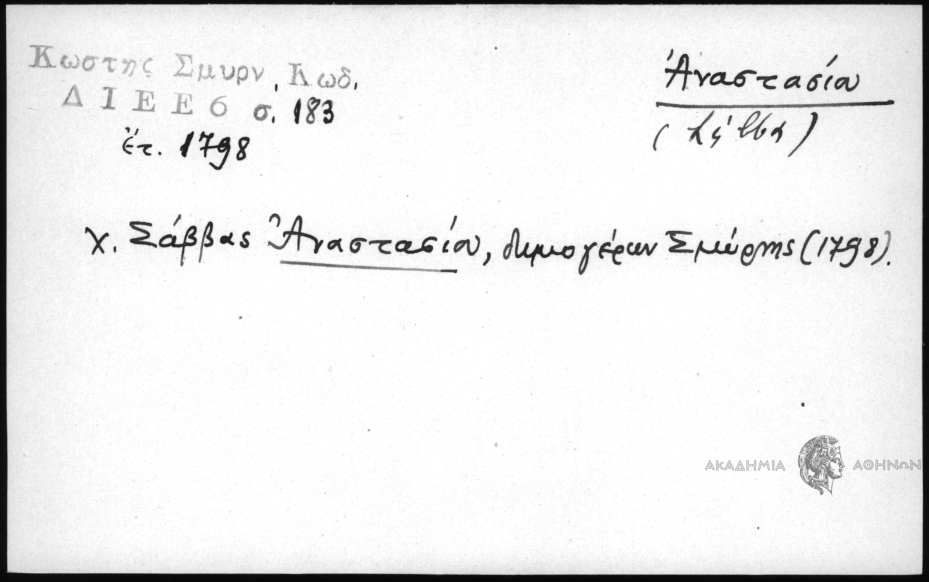 Κωστης Σμυρν. Κωδ.
Δ Ι Ε Ε 6 σ. 183
ἔτ. 1798
Ἀναστασία
χ. Σάββας Ἀναστασία, δημογέρων Σμύρνης (1798).
ΑΚΑΔΗΜΙΑ ΑΘΗΝΩΝ